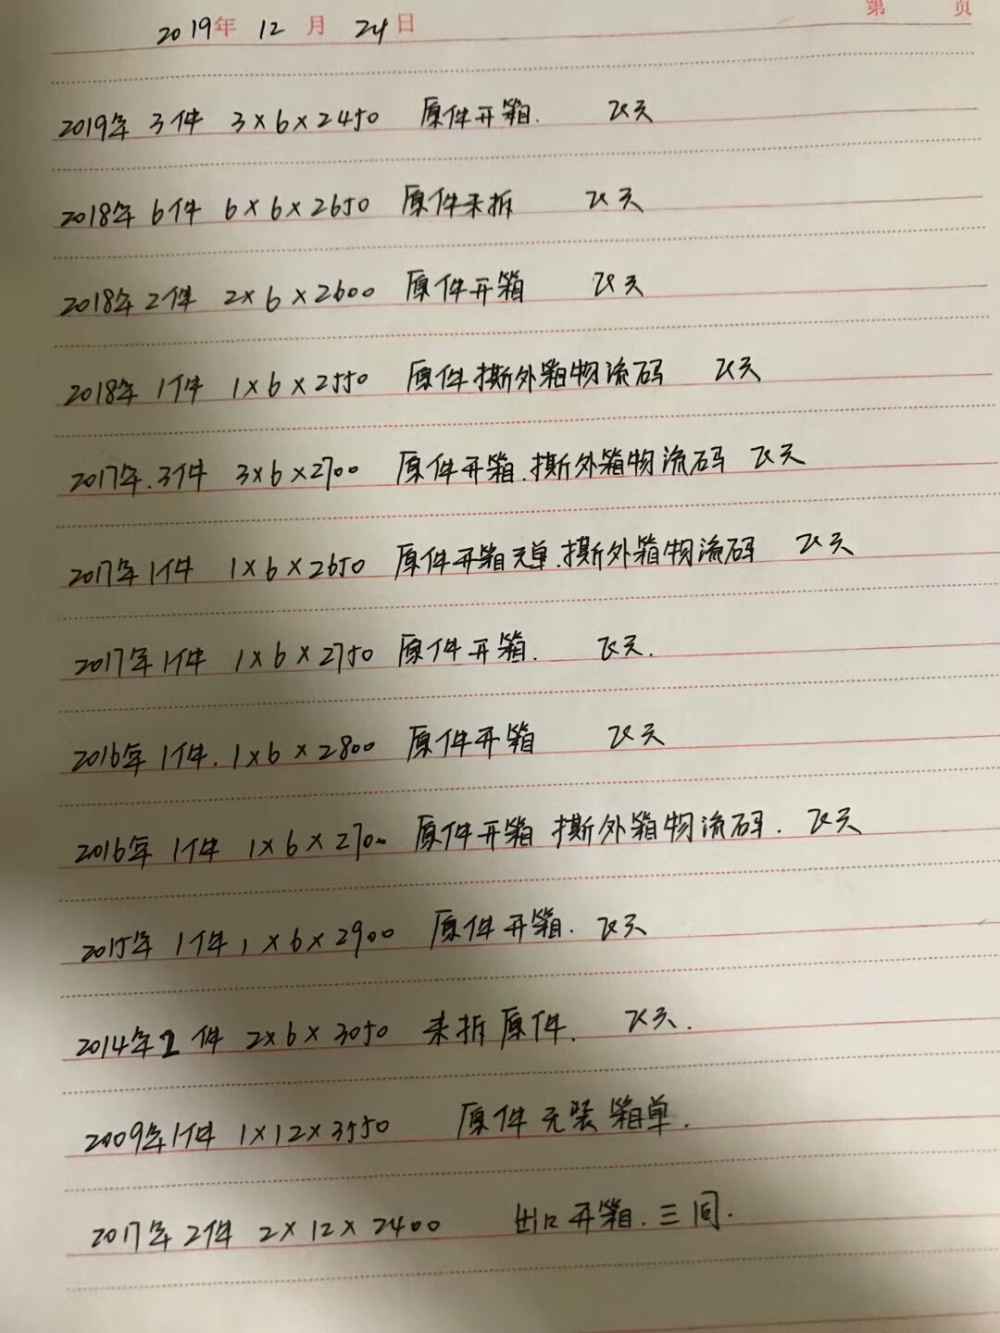 第 页
2019年 12 月 24 日
2019年 3件 3×6×2450 原件开箱. 飞天
2018年 6件 6×6×2650 原件未拆 飞天
2018年 2件 2×6×2600 原件开箱 飞天
2018年 1件 1×6×2550 原件撕外箱物流码 飞天
2017年.3件 3×6×2700 原件开箱.撕外箱物流码 飞天
2017年1件 1×6×2650 原件开箱无单.撕外箱物流码 飞天
2017年1件 1×6×2750 原件开箱. 飞天.
2016年1件. 1×6×2800 原件开箱 飞天
2016年 1件 1×6×2700 原件开箱 撕外箱物流码. 飞天
2015年 1件 1×6×2900 原件开箱. 飞天
2014年2件 2×6×3050 未拆原件. 飞天.
2009年1件 1×12×3550 原件无装箱单.
2017年2件 2×12×2400 出口开箱.三同.